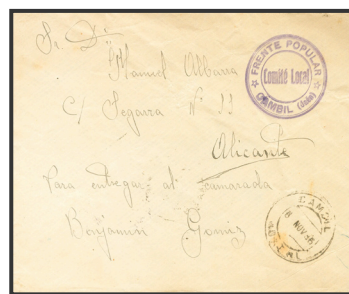 Sr. Dn
Manuel Albarra
C/ Segarra Nº 22
Alicante
Para entregar al camarada
Benjamin Gomiz
FRENTE POPULAR
Comité Local
CAMBIL (Jaén)
CAMBIL
NOV 36